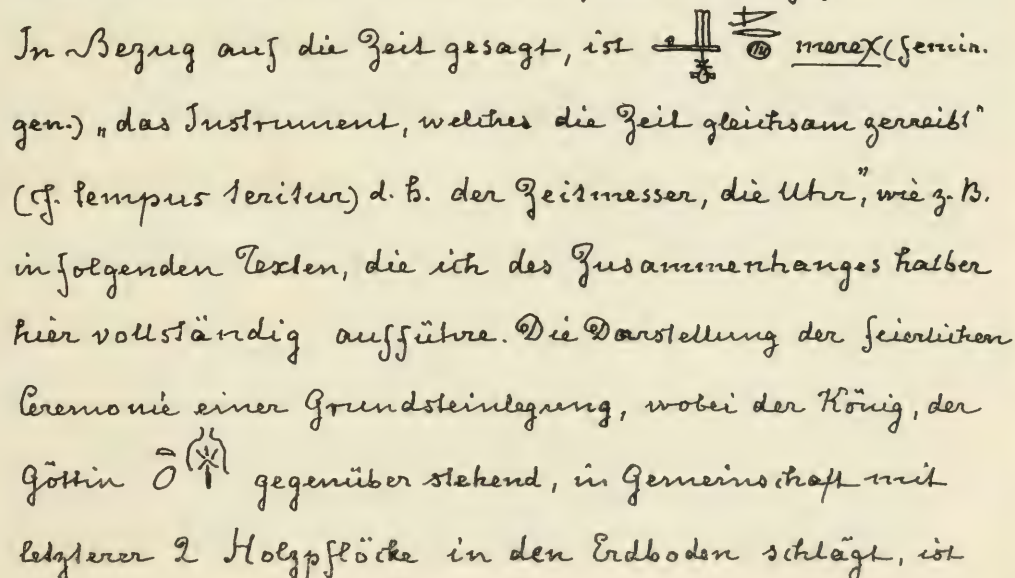 In Bezug auf die Zeit gesagt, ist mereχ (femin.
gen.) „das Instrument, welches die Zeit gleichsam zerreibt"
(cf. tempus teritur) d. h. der Zeitmesser, die Uhr," wie z. B.
in folgenden Texten, die ich des Zusammenhanges halber
hier vollständig aufführe. Die Darstellung der feierlichen
Ceremonie einer Grundsteinlegung, wobei der König, der
Göttin gegenüber stehend, in Gemeinschaft mit
letzterer 2 Holzpflöcke in den Erdboden schlägt, ist